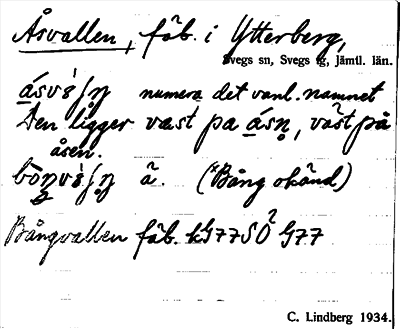 Åsvallen, fäb. i Ytterberg,
Svegs sn, Svegs tg, jämtl. län.
numera det vanl. namnet
Den ligger väst på åsṇ, väst på
åsen.
ä. (*Bång okänd)
Bångvallen fäb. kG77SO² G77
C. Lindberg 1934.